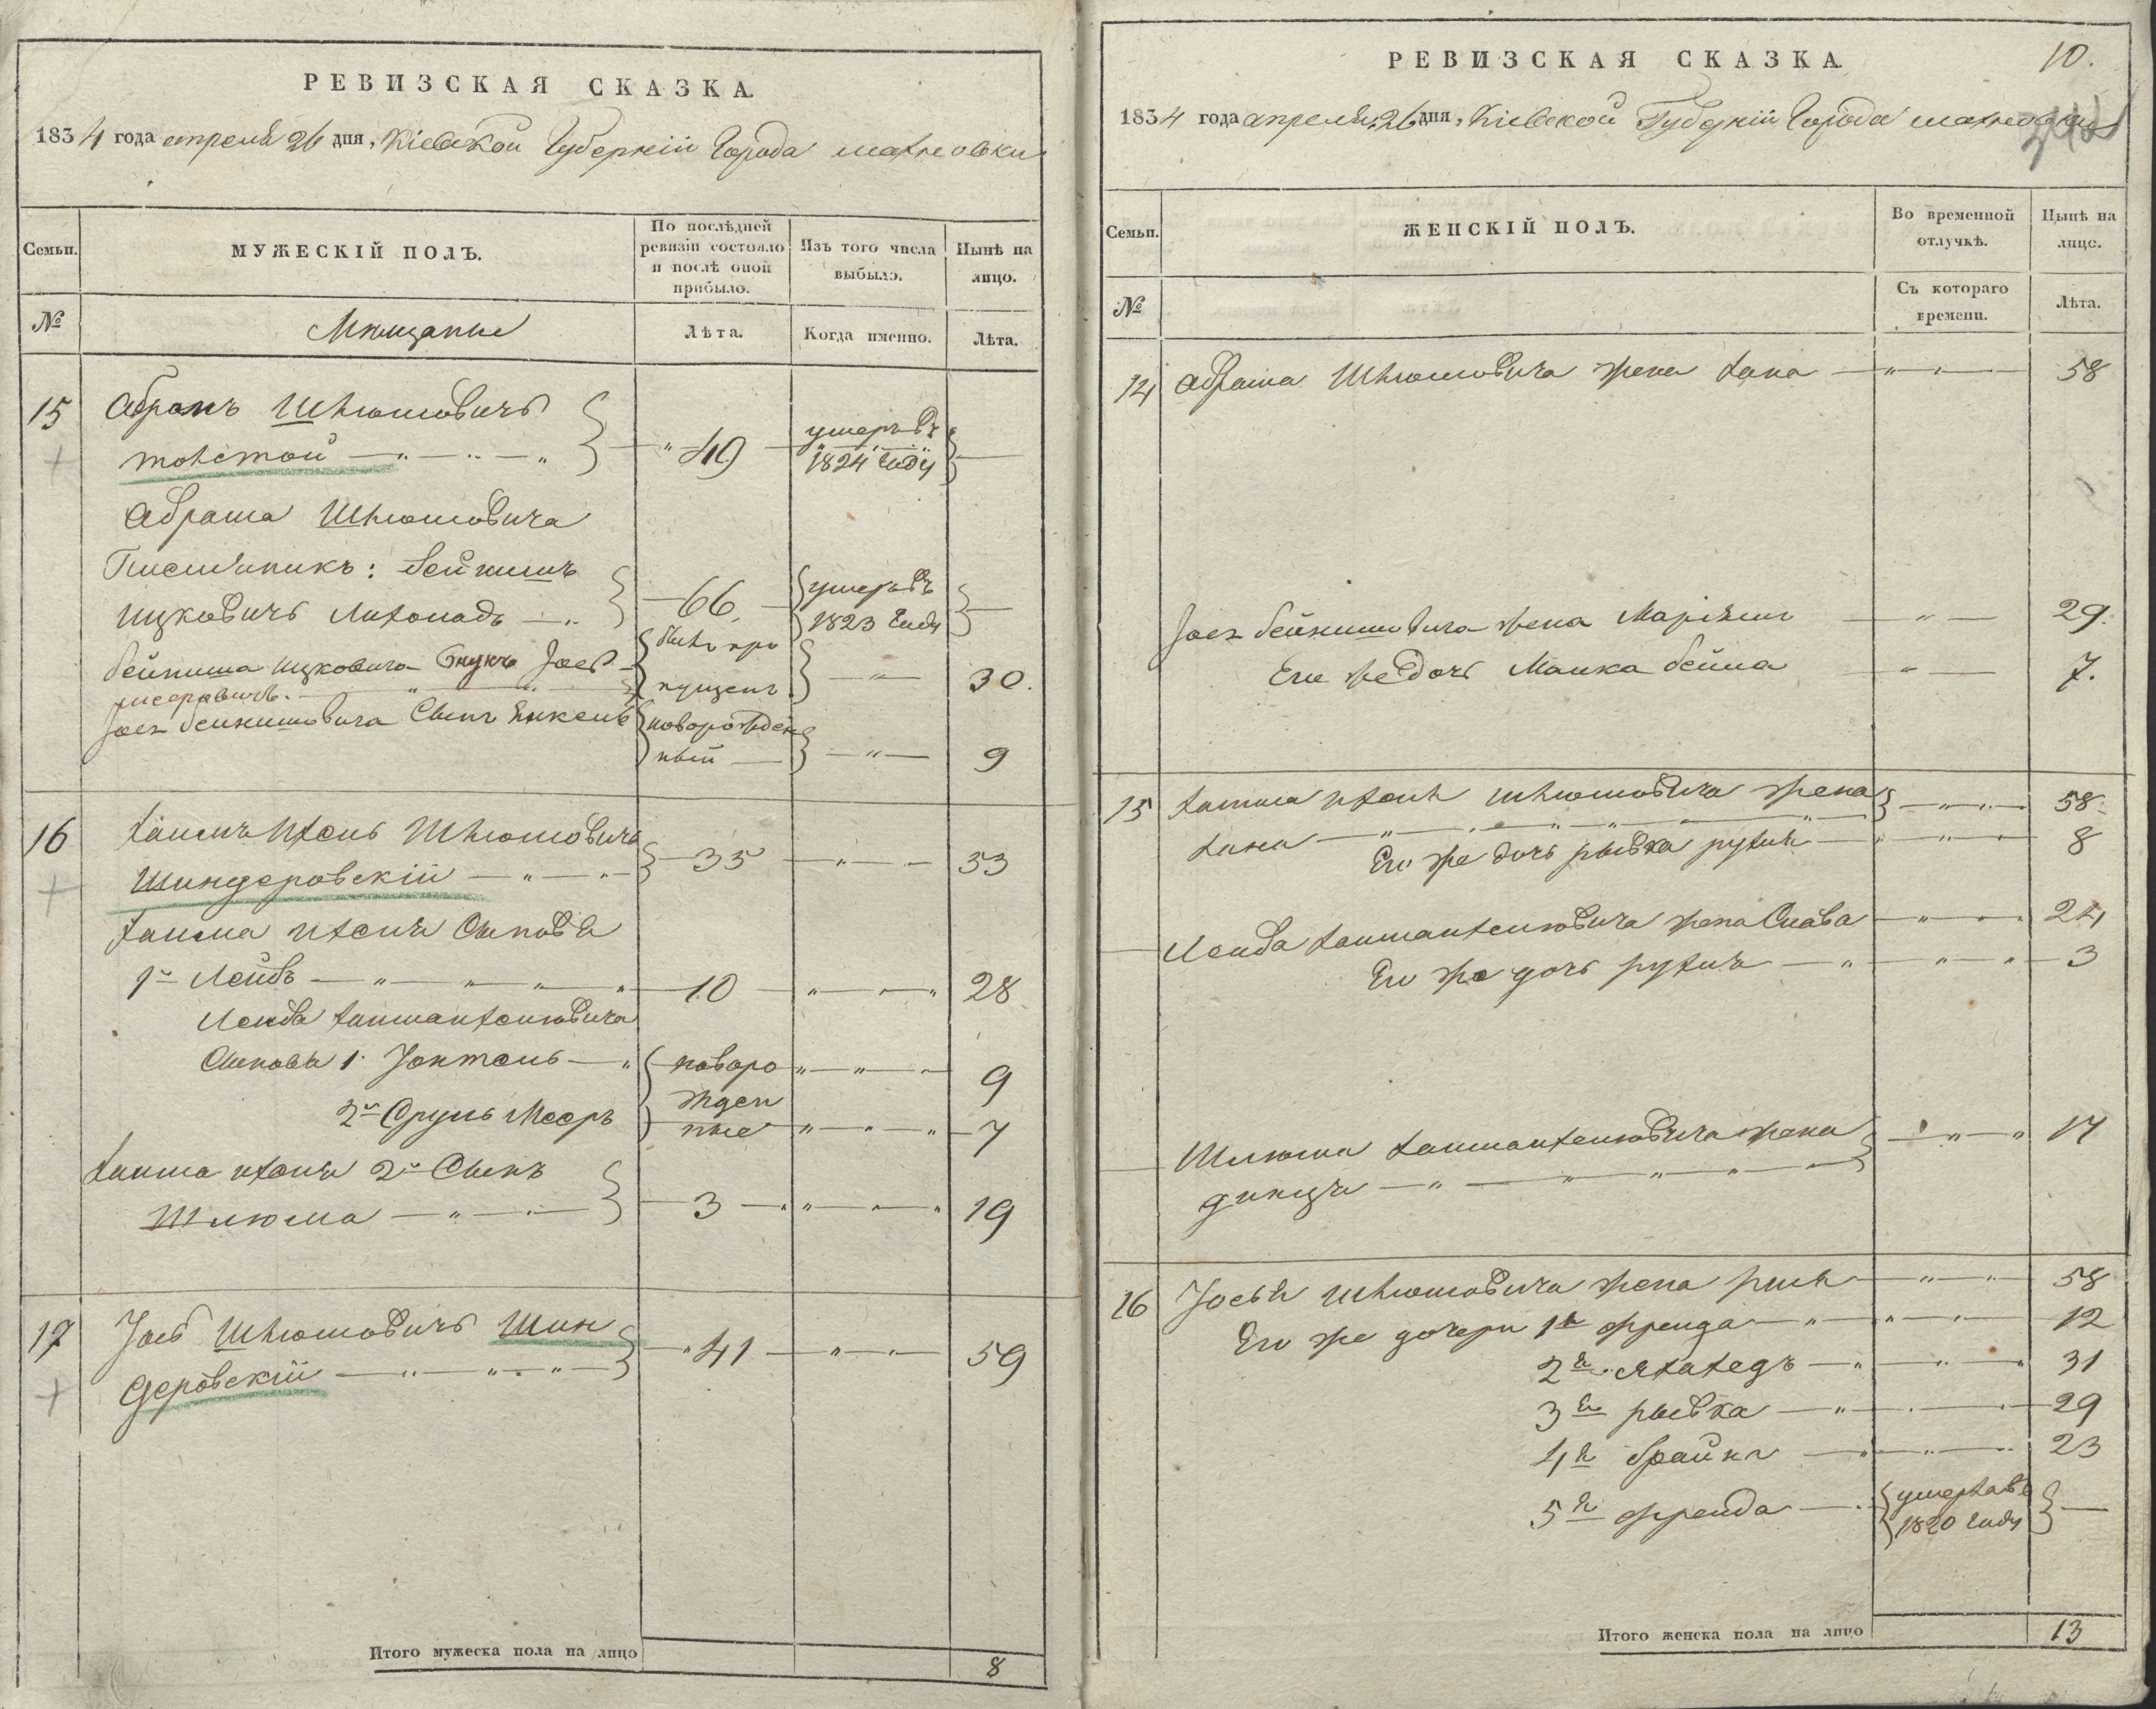 РЕВИЗСКАЯ СКАЗКА.
1834 года апреля 26 дня, Кіевской Губерніи Города Махновки
Семьи.
МУЖЕСКІЙ ПОЛЪ.
По послѣдней ревизіи состояло и послѣ оной прибыло.
Изъ того числа выбыло.
Нынѣ на лицо.
№
Мещанъе
Лѣта.
Когда именно.
Лѣта.
15 Абрамъ Шлюмовичъ
толстой 49 умеръ въ 1824 году
Абрама Шлюмовича
Племяникъ: Бейнишъ
Ицковичъ Лихоладъ 66 умеръ въ 1823 году
Бейниша Ицковича Внукъ Іосъ
былъ пропущенъ 30.
Іося Бейнишовича Сынъ Янкель новорожденный 9
16 Хаимъ Ихель Шлюмовичъ
Шиндеровскій 35 53
Хаима Ихеля Сыновья
1й Лейбъ 10 28
Лейба Хаимаихелювича
Сыновья 1 Іохтель новорожденные 9
2й Сруль Мееръ 7
Хаима Ихеля 2й Сынъ
Шлюма 3 19
17 Іосъ Шлюмовичъ Шин
деровскій 41 59
Итого мужеска пола на лицо 8
РЕВИЗСКАЯ СКАЗКА. 10.
1834 года апреля 26 дня, Кіевской Губерніи Города Махновки
Семьи.
ЖЕНСКІЙ ПОЛЪ.
Во временной отлучкѣ.
Нынѣ на лице.
№
Съ котораго времени.
Лѣта.
14 Абрама Шлюмовича жена Хана 58
Іося Бейнишовича жена Марьям 29.
Его же дочь Малка Бейла 7.
15 Хаима Ихеля Шлюмовича жена
Хана 58.
Его же дочь рывка рухля 8
Лейба Хаимаихелювича жена Слава 24
Его же дочь рухля 3
Шлюма Хаимаихелювича жена 17
динця
16 Іосья Шлюмовича жена 58
Его же дочери 1я фрейда 12
2я 31
3я рывка 29
4я брайна 23
5я фрейда умерла въ 1820 году
Итого женска пола на лицо 13